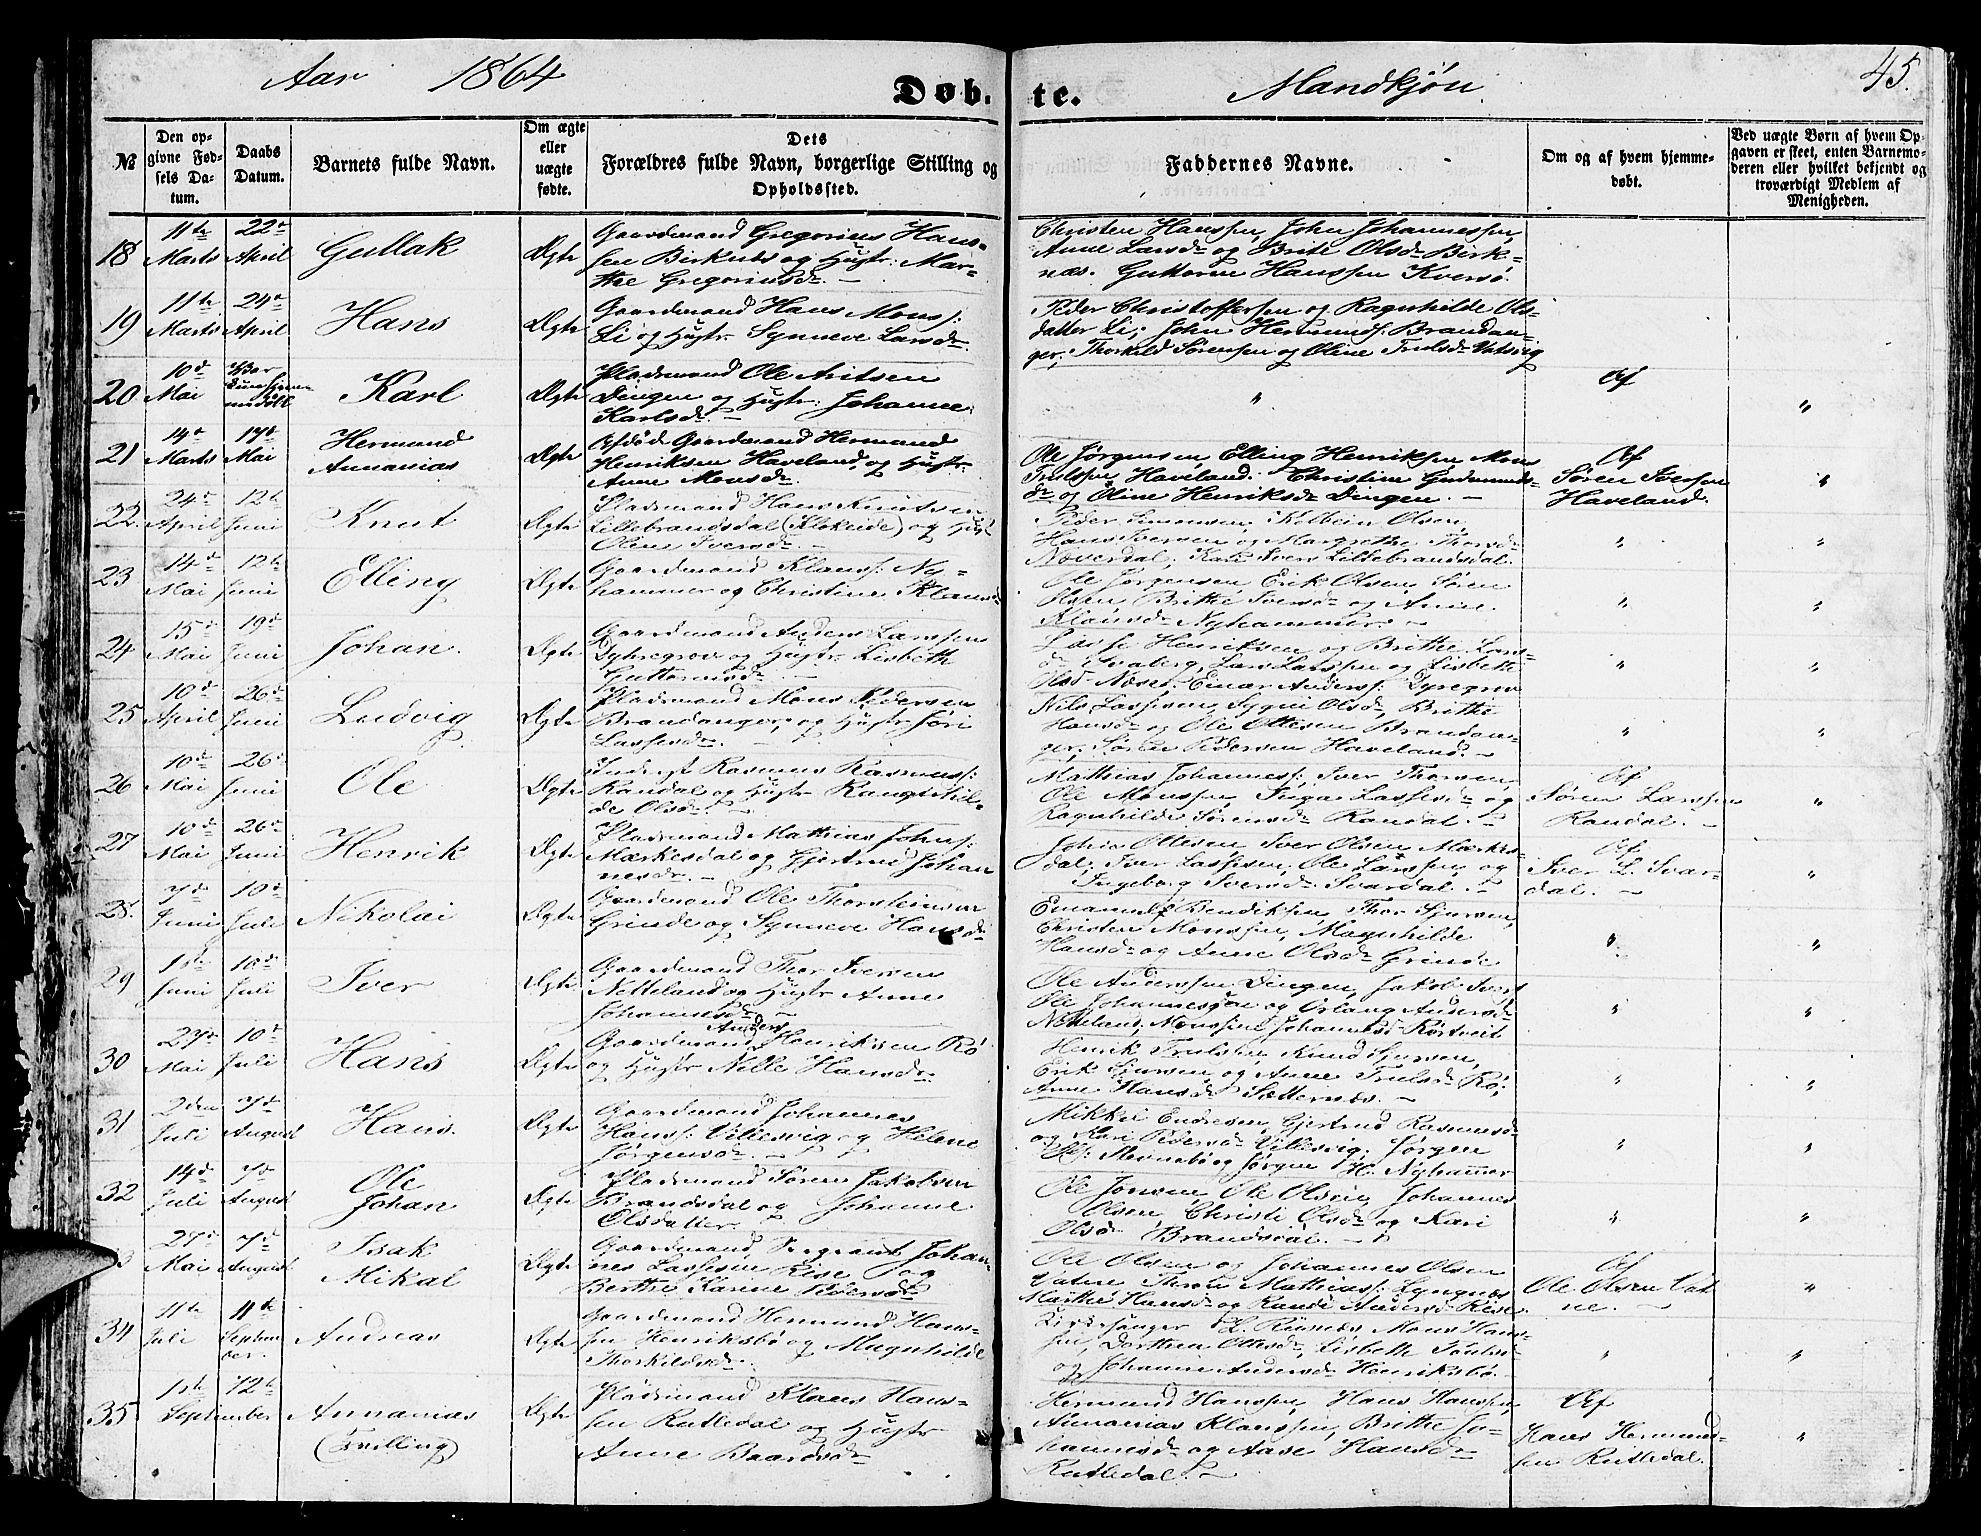 Aar 1864
Døb. te.
Mandkjøn
45.
№
Den op-
givne Fød-
sels Da-
tum.
Daabs
Datum.
Barnets fulde Navn.
Om ægte
eller
uægte
fødte.
Dets
Forældres fulde Navn, borgerlige Stilling og
Opholdssted.
Faddernes Navne.
Om og af hvem hjemme-
døbt.
Ved uægte Børn af hvem Op-
gaven er skeet, enten Barnemo-
deren eller hvilket bekjendt og
troværdigt Medlem af
Menigheden.
18
11te Marts
22de April
Gullak
Ægte
Gaardmand Gregorius Hans-
sen Birknes og Hustr: Mar-
the Gregoriusdr.
Christen Hanssen, John Johannessen,
Anne Larsdr og Brite Olsdr Birk-
næs. Guttorm Hanssen Kversø.
19
11te Marts
24de April
Hans
Ægte
Gaardmand Hans Monss:
Li og Hustr: Synneve Larsdr.
Peder Christoffersen og Ragnhilde Ols-
datter Li; John Hermunds: Brandan-
ger, Thorkild Sørensen og Oline Trulsdr
20
10de Mai
Karl
Ægte
Pladsmand Ole
Dingen og Hustr: Johanne
Karlsdr.
"
Af
"
21
14de Marts
17de Mai
Hermund
Annanias
Ægte
Afdøde Gaardmand Hermund
Henriksen Haveland, og Hustr:
Anne Monsdr.
Ole Jørgensen, Elling Henriksen Mons
Trulssen Haveland. Christine Gudmunds-
dr og Oline Henriksdr Dingen.
Af
Søren Iversen
Haveland.
"
22
24de April
12te Juni
Knut
Ægte
Pladsmand Hans Knutsen
Lillebrandsdal (Klokeide) og Hust
Oline Iversdr
Peder Simonsen, Kolbein Olsen,
Hans Iversen og Margrethe
Noverdal, Kari Ivers Lillebrandsdal.
"
"
23
14de Mai
12te Juni
Elling
Ægte
Gaardmand Klaus: Ny-
hammer og Christine Klausd
Ole Jørgensen, Erik Olsen, Søren
Olsen, Brithe Iversdr og Anne
Klausdr Nyhammer.
"
"
24
15de Mai
19de Juni
Johan.
Ægte
Gaardmand Anders Larssen
Dyhregrov og Hustr: Lisbeth
Guttormsdr
Lasse Henriksen og Brithe Lars-
dr Svaberg, Lars Larssen og Lisbette
Næset. Einar Anderss: Dyregrov
"
"
25
10de April
26de Juni
Ludvig
Ægte
Pladsmand Mons Pedersen
Brandanger, og Hustr: Jøri
Lassesdr.
Nils Lassesen, Sygni Olsdr, Brithe
Hansdr og Ole Ottesen Brandan-
ger. Søren Pedersen Haveland.
"
"
26
10de Mai
26de Juni
Ole
Ægte
Inderst Rasmus Rasmuss:
Randal og Hustr:
Olsdr.
Mathias Johanness: Iver Thorsen,
Ole Monssen, Inga Lassesdr og
Ragnhilde Sørensdr Randal.
Af
Søren Larssen
Randal.
"
27
10de Mai
26de Juni
Henrik
Ægte
Pladsmand Mathias Johns:
Mærkesdal og Gjertrud Johan
nesdr.
Johan Ottesen, Iver Olsen Mærkes-
dal, Iver Lassesen, Ole Larssen og
Ingeborg Iversdr Svardal.
Af
Iver L. Svar-
dal.
"
28.
7de Juni
10de Juli
Nikolai
Ægte
Gaardmand Ole Thorsteinsen
Grinde og Synneve Hansdr
Emanuel Bendiksen, Thor Sjursen,
Christen Monssen, Magnhilde
Hansdr og Anne Olsdr Grinde
"
"
29
1ste Juni
10de Juli
Iver
Ægte
Gaardmand Thor Iversen
Nitteland og Hustr: Anne
Johannesdr
Ole Anderssen Dingen, Jakob Ivers
Ole Johannessen og Anders
Nitteland, Johannesdr Rortveit
"
"
30
23de Mai
10de Juli
Hans
Ægte
Anders
Gaardmand Henriksen Rø
og Hustr: Nille Hansdr.
Henrik Trulssen, Knud Sjursen,
Erik Sjursen og Anne Trulsdr Rø,
Anne Hansdr Sætternæs.
"
"
31
2den Juli
7de August
Hans.
Ægte
Gaardmand Johannes
Hanss: Vilkesvig og Helene
Jørgensdr.
Mikkel Endresen, Gjertrud Rasmusd
og Kari Pedersdr Vilkesvig, Jørgen
og Jørgen H. Nyhammer
"
"
32
14de Juli
7de August
Ole
Johan
Ægte
Pladsmand Søren Jakobsen
Brandsdal og Johanne
Olsdatter.
Ole Jonsen, Ole Olsen, Johannes
Olsen, Christi Olsdr og Kari
Olsdr Brandsdal.
"
"
3
27de Mai
7de August
Isak
Mikal
Ægte
Gaardmand, Sergeant Johan-
nes Lassesen Rise og
Berthe Karine Iversdr
Ole Olsen og Johannes Olsen
Vatne Mathiass: Lyngnes
Marthe Hansdr og Randi Andersdr Rise.
Af
Ole Olsen Vat
ne.
"
34
11te Juli
11te Septem
ber.
Andreas
Ægte
Gaardmand Hermund Hans-
sen Henriksbø og Magnhilde
Thorkildsdr.
Kirkesanger H. Risnes, Mons Hans-
sen, Dorthea Ottesdr, Lisbeth
og Johanne Andersdr Henriksbø.
"
"
35
1ste 12te
September
Annanias
(Tvilling)
Ægte
Pladsmand Klaus Hans-
sen Rutledal og Hustr
Anne Baardsdr
Hermund Hanssen, Hans Hanssen,
Annanias Klaussen, Brithe Jo-
hannesdr og Aase Hansdr
Rutledal.
Af
Hans Hermund-
sen Rutledal.
"